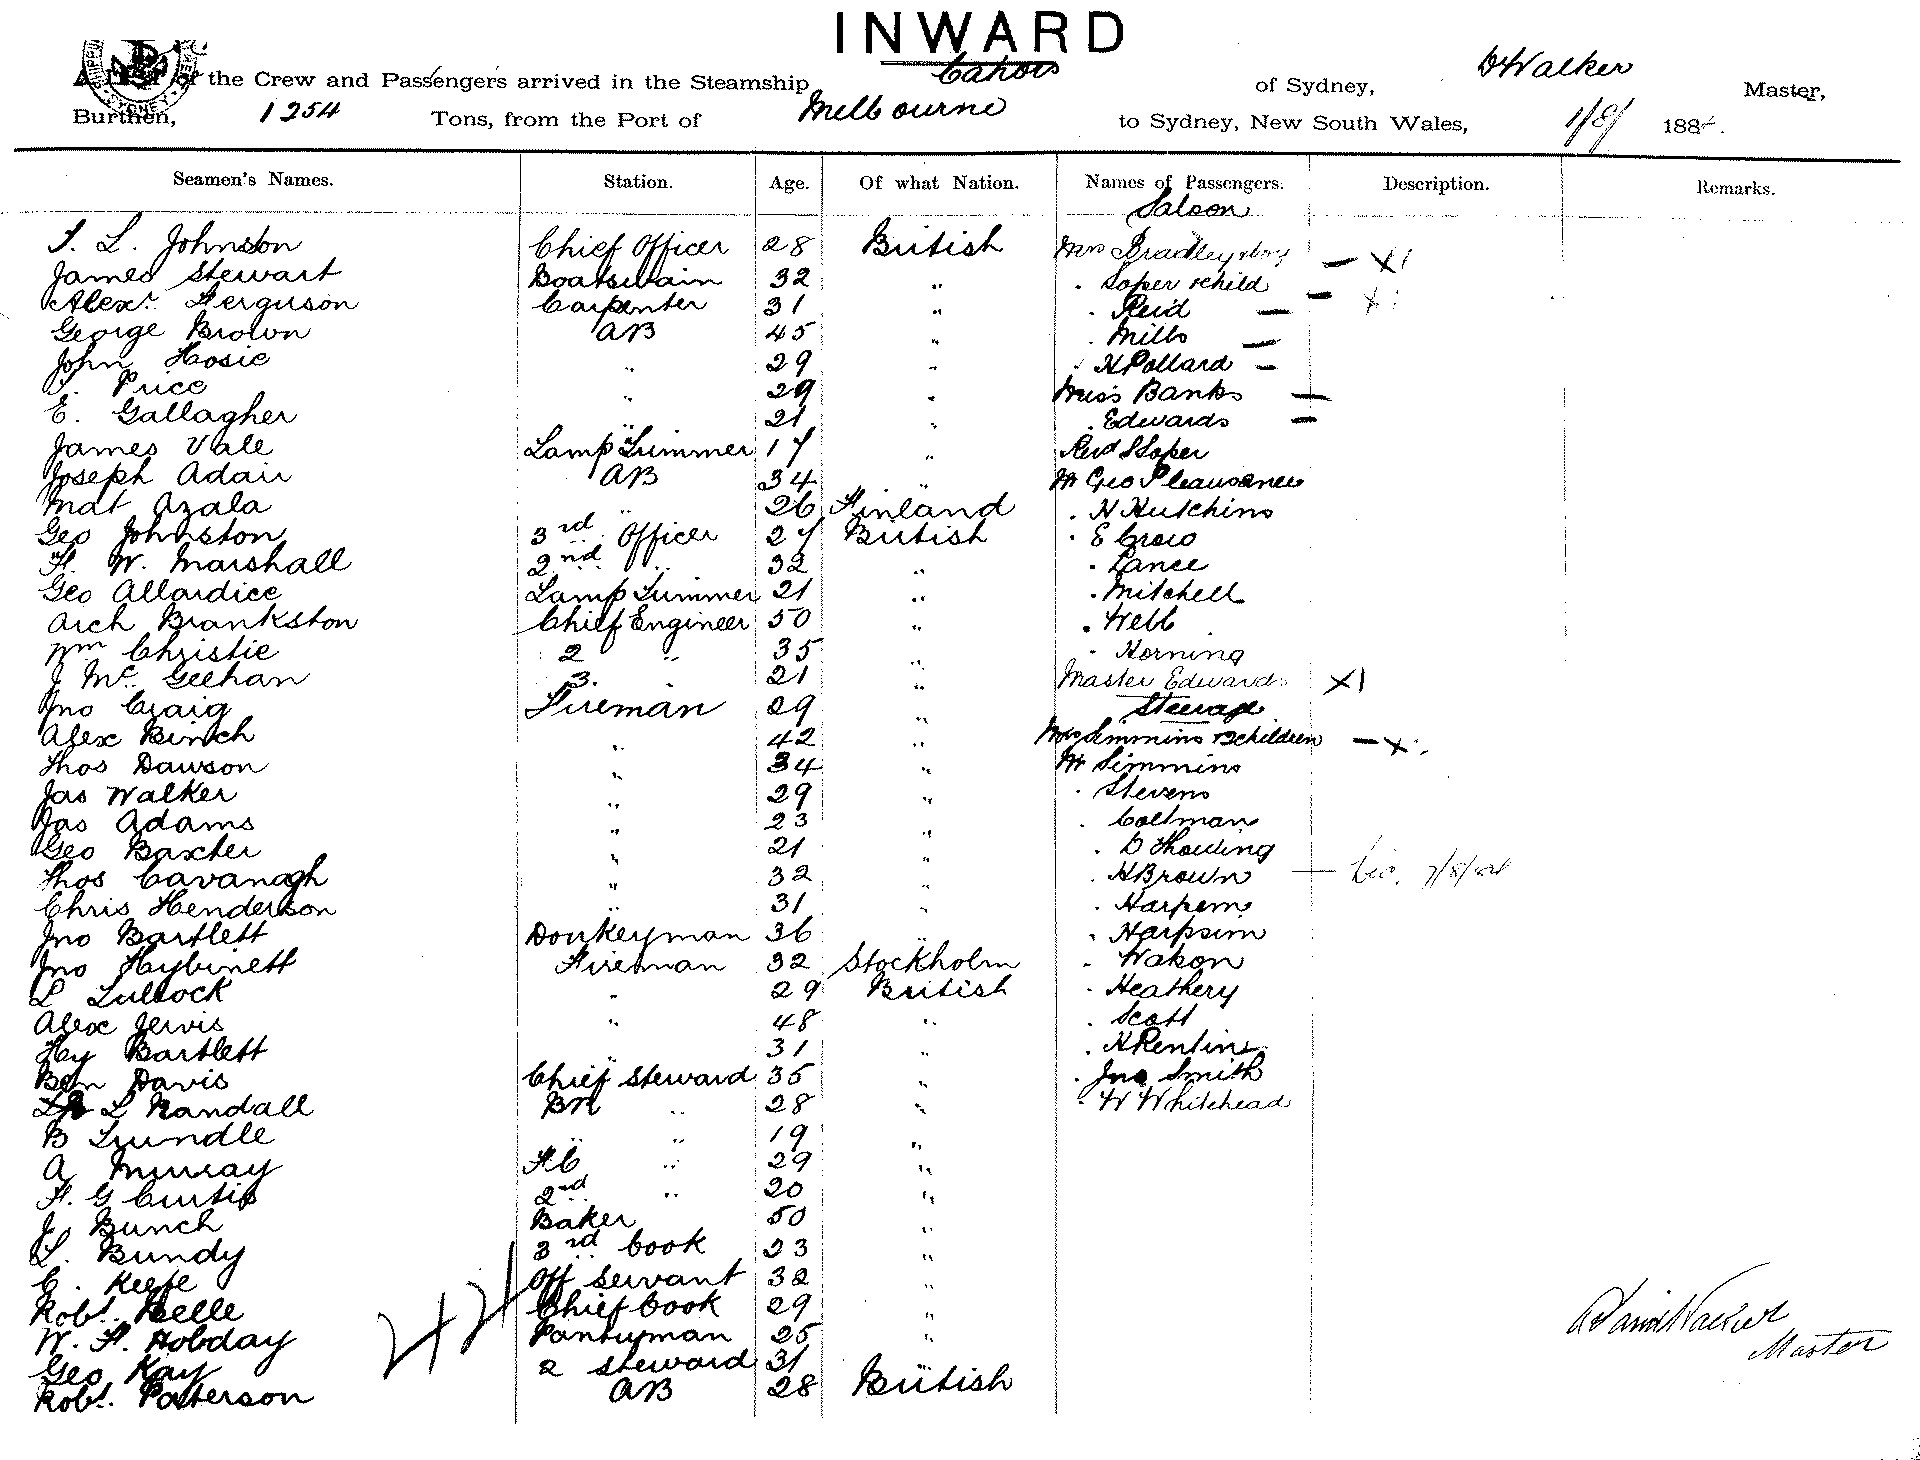 INWARD
A List of the Crew and Passengers arrived in the Steamship Cahors of Sydney, D Walker Master,
Burthen, 1254 Tons, from the Port of Melbourne to Sydney, New South Wales, 1/8/ 1884.
Seamen's Names. Station. Age. Of what Nation. Names of Passengers. Description. Remarks.
Saloon
L. Johnston Chief Officer 28 British Mrs Bradley & boy — X1
James Stewart Boatswain 32 " " Soper & child — X
Alexr. Ferguson Carpenter 31 " " Reid —
George Brown AB 45 " " Mills —
John Hosie " 29 " " H Pollard —
Price " 29 " Miss Banks —
E. Gallagher " 21 " " Edwards —
James Vale Lamp Trimmer 17 " Revd S Soper
Joseph Adair AB 34 " Mr Geo Pleasance
Mat Azala " 26 Finland " H Hutchins
Geo Johnston 3rd Officer 27 British " E Crow
F. W. Marshall 2nd " 32 " " Lance
Geo Allardice Lamp Trimmer 21 " " Mitchell
Arch Brankston Chief Engineer 50 " " Webb
Wm Christie 2 " 35 " " Horning
J Mc. Geehan 3. " 21 " Master Edwards X1
Jno Craig Fireman 29 " Steerage
Alex Binch " 42 " Mrs Simmins & 2 children — X
Thos Dawson " 34 " Mr Simmins
Jas Walker " 29 " " Stevens
Jas Adams " 23 " " Coltman
Geo Baxter " 21 " " D Thoding
Thos Cavanagh " 32 " " H Brown —
Chris Henderson " 31 " " Harpem
Jno Bartlett Donkeyman 36 " " Harpsim
Jno Hybinett Fireman 32 Stockholm " Wakon
L Tullock " 29 British " Heathery
Alex Jervis " 48 " " Scott
Hy Bartlett " 31 " " H Rentins
Ben Davis Chief Steward 35 " " Jno Smith
L Randall BR " 28 " " W Whitehead
B Trundle " " 19 "
A Murray F.C " 29 "
F. G Curtis 2nd " 20 "
J Bunch Baker 50 "
L. Bundy 3rd Cook 23 "
C. Keefe Off Servant 32 "
Robt. Kelle Chief Cook 29 "
W. F. Hobday Pantryman 25 "
Geo Kay 2 Steward 31 "
Robt. Patterson AB 28 British
42
David Walker
Master